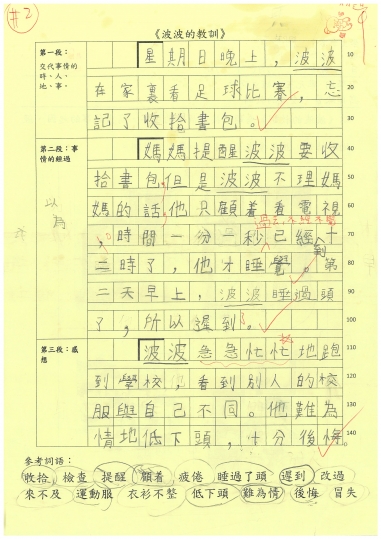 #2
《波波的教訓》
第一段：
交代事情的
時、人、
地、事。
星期日晚上，波波
在家裏看足球比賽，忘
記了收拾書包。
第二段：事
情的經過
媽媽提醒波波要收
拾書包，但是波波不理媽
媽的話，他只顧着看電視
，時間一分一秒已經到十
二時了，他才睡覺。第
二天早上，波波睡過頭
了，所以遲到。
第三段：感
想
波波急急忙忙地跑
到學校，看到別人的校
服與自己不同。他難為
情地低下頭，十分後悔。
以為
10
20
30
40
50
60
70
80
90
100
110
120
130
140
參考詞語：
收拾 檢查 提醒 顧着 疲倦 睡過了頭 遲到 改過
來不及 運動服 衣衫不整 低下頭 難為情 後悔 冒失